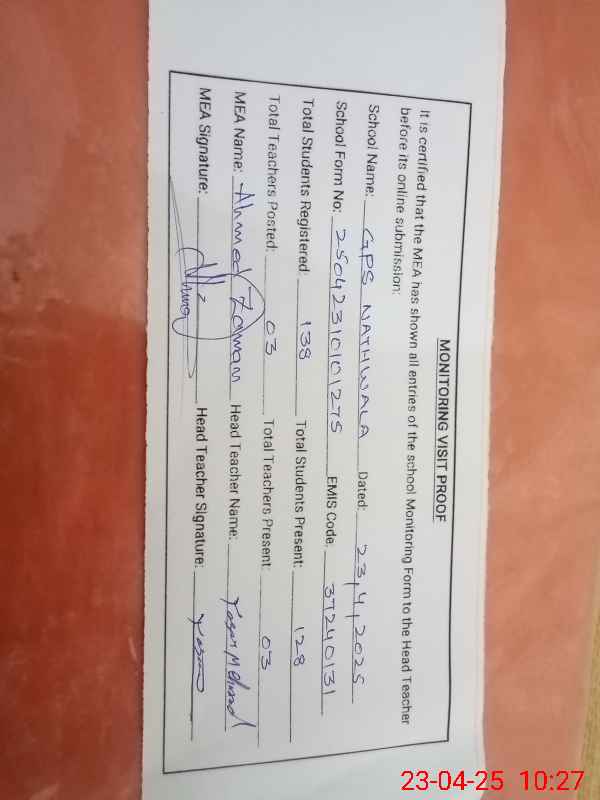 MONITORING VISIT PROOF
It is certified that the MEA has shown all entries of the school Monitoring Form to the Head Teacher
before its online submission:
School Name: GPS NATHWALA Dated: 23/4/2025
School Form No: 25042310101275 EMIS Code: 37240131
Total Students Registered: 138 Total Students Present: 128
Total Teachers Posted: 03 Total Teachers Present: 03
MEA Name: Ahmed Zaman Head Teacher Name: Yasir Mehmood
MEA Signature: Head Teacher Signature:
23-04-25 10:27